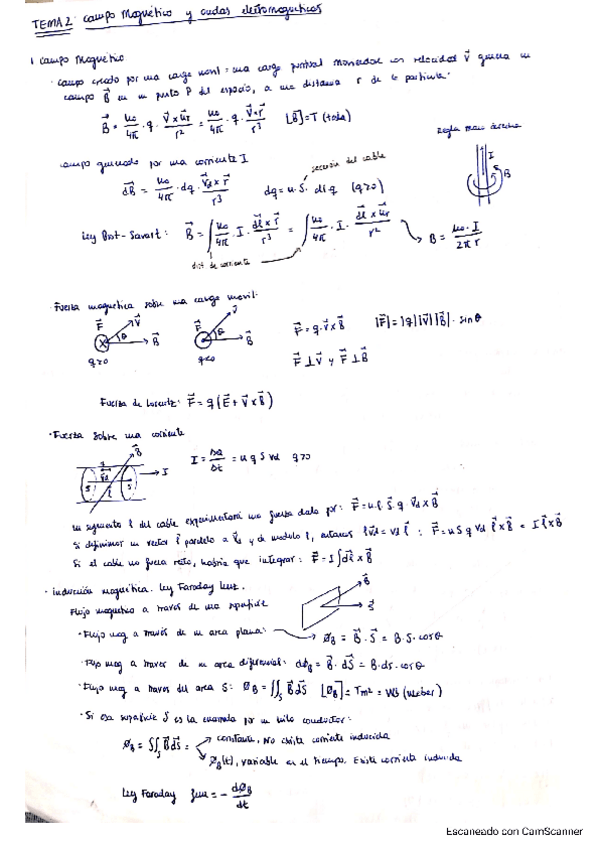 TEMA 2: campo Magnético y ondas electromagnéticas
1. campo Magnético
· campo creado por una carga móvil: una carga puntual moviéndose con velocidad v⃗ genera un
campo B⃗ en un punto P del espacio, a una distancia r de la partícula.
B⃗ = μ0/4π · q · v⃗ x u⃗r / r² = μ0/4π · q · v⃗ x r⃗ / r³ [B⃗] = T (tesla)
Regla mano derecha
I
B
campo generado por una corriente I
sección del cable
dB⃗ = μ0/4π · dq · v⃗d x r⃗ / r³ dq = n · S · dl q (q>0)
Ley Biot-Savart: B⃗ = ∫ μ0/4π · I · dl⃗ x r⃗ / r³ = ∫ μ0/4π · I · dl⃗ x u⃗r / r² → B = μ0 · I / 2πr
dist. de corriente
· Fuerza magnética sobre una carga móvil
F⃗ v⃗ θ B⃗ q>0
F⃗ v⃗ θ B⃗ q<0
F⃗ = q · v⃗ x B⃗ |F⃗| = |q| |v⃗| |B⃗| · sin θ
F⃗ ⊥ v⃗ y F⃗ ⊥ B⃗
Fuerza de Lorentz: F⃗ = q (E⃗ + v⃗ x B⃗)
· Fuerza sobre una corriente
B⃗ → I S S l
I = ΔQ/Δt = n q S vd q>0
un segmento l del cable experimentará una fuerza dada por: F⃗ = n · l · S · q · v⃗d x B⃗
Si definimos un vector l⃗ paralelo a v⃗d y de modulo l, entonces l v⃗d = vd l⃗ : F⃗ = n S q vd l⃗ x B⃗ = I l⃗ x B⃗
Si el cable no fuera recto, habría que integrar: F⃗ = I ∫ dl⃗ x B⃗
· inducción magnética. Ley Faraday Lenz.
Flujo magnético a través de una superficie
B⃗
S⃗
· Flujo mag a través de un area plana: → ØB = B⃗ · S⃗ = B · S · cos θ
· Flujo mag a traves de un area diferencial: dØB = B⃗ · dS⃗ = B · ds · cos θ
· Flujo mag a traves del area S: ØB = ∫∫s B⃗ dS⃗ [ØB] = Tm² = Wb (Weber)
· Si esa superficie S es la encerrada por un hilo conductor:
ØB = ∫∫s B⃗ dS⃗ = constante, No existe corriente inducida
ØB(t), variable en el tiempo. Existe corriente inducida
Ley Faraday fem = - dØB/dt
Escaneado con CamScanner